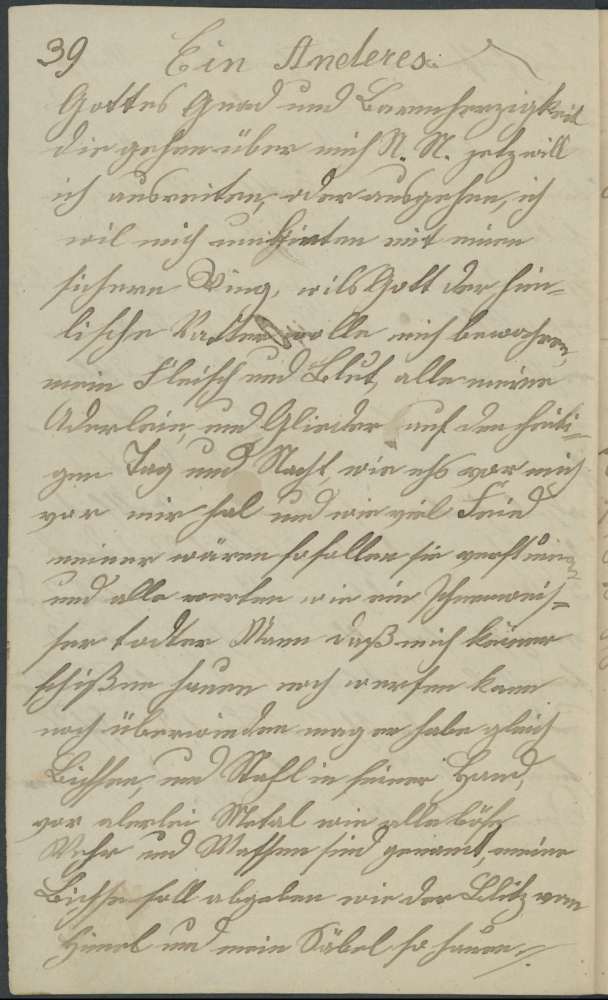 39 Ein Anderes.
Gottes Gnad und Barmherzigkeit
die gehen über mich N. N. jetz will
ich ausreiten, oder ausgehen, ich
wil mich umhirten mit einen
sichern Ring, wils Gott der him-
lische Vatter wolle mich bewahren,
mein Fleisch und Blut, alle meine
Aderlein, und Glieder auf den heüti-
gen Tag und Nacht, wie ichs vor mich
vor mir hal und wie viel Feind
meiner wären so sollen sie verstumen
und alle werten wie ein schneeweis-
ser todter Mann daß mich keiner
schißen hauen noch werfen kann
noch überwinden mag er habe gleich
Bichsen, und Stahl in seiner Hand,
vor alerlei Metal wie alle böse
Wehr und Waffen sind genant, meine
Bichse soll abgehen wie der Blitz vom
Himel und mein Säbel so hauen